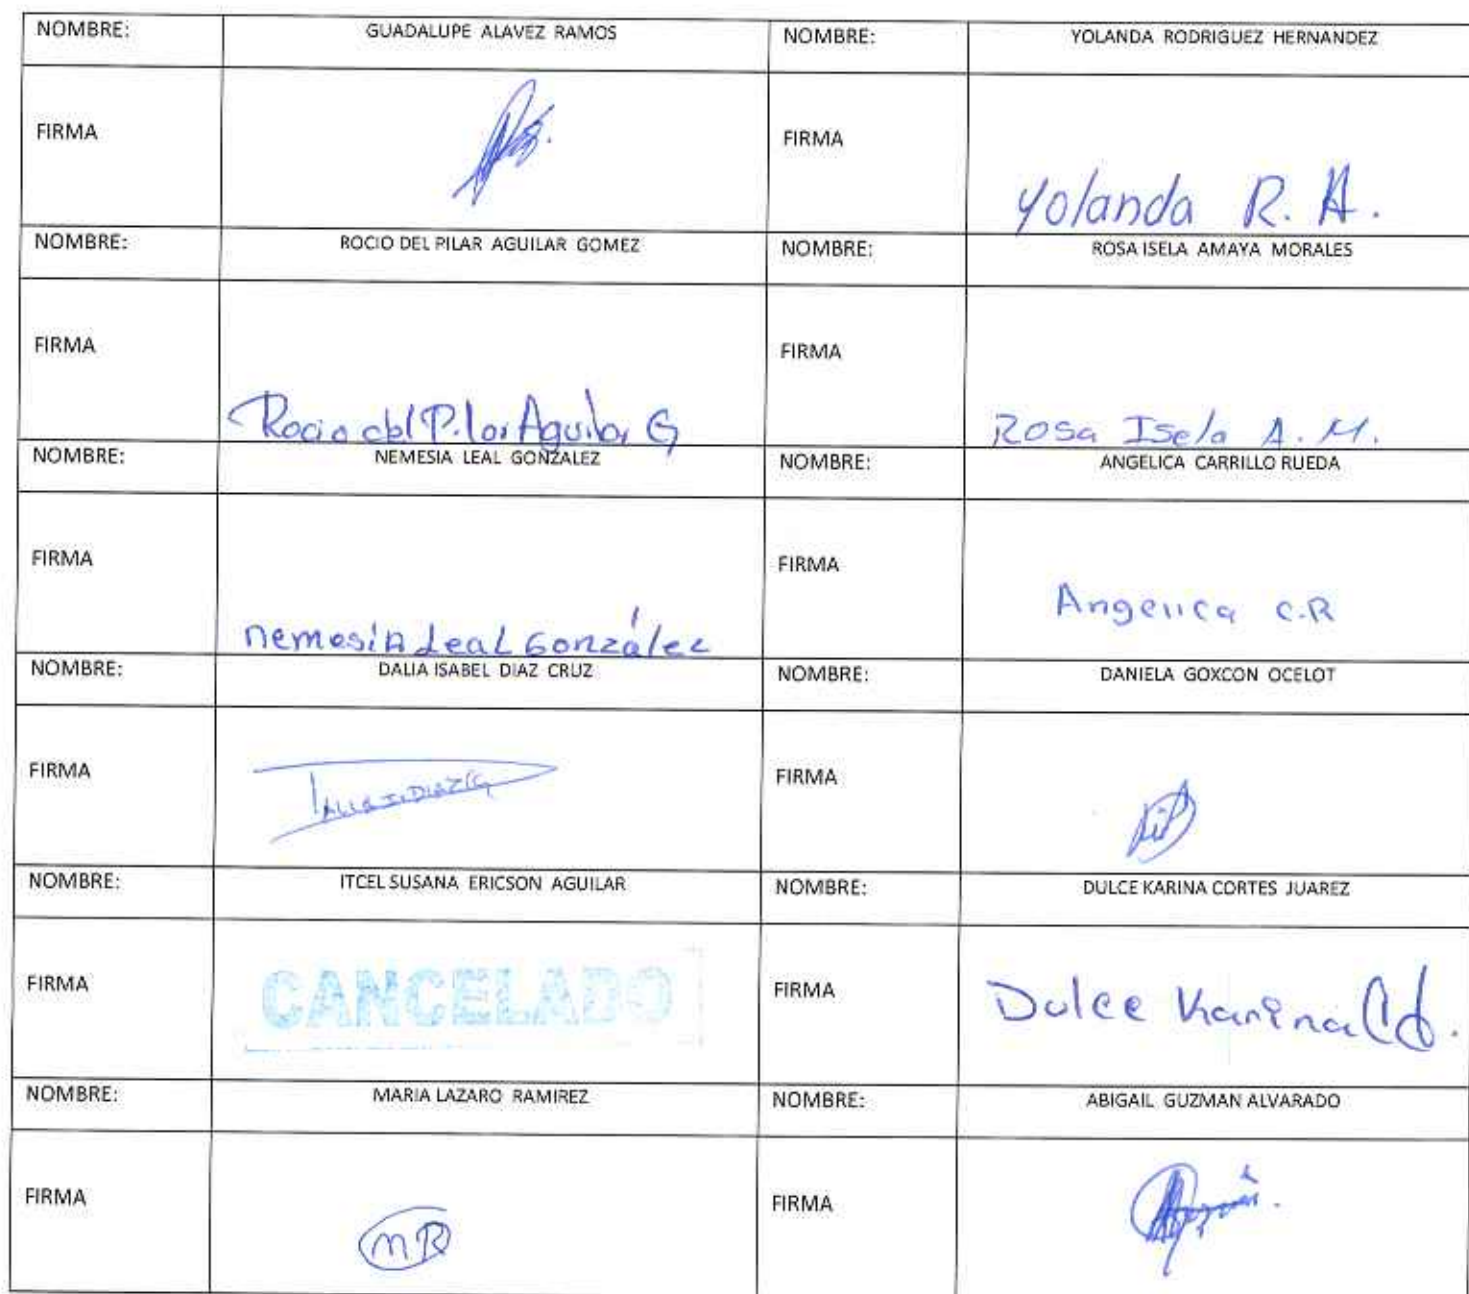 NOMBRE: GUADALUPE ALAVEZ RAMOS NOMBRE: YOLANDA RODRIGUEZ HERNANDEZ
FIRMA FIRMA Yolanda R. H.
NOMBRE: ROCIO DEL PILAR AGUILAR GOMEZ NOMBRE: ROSA ISELA AMAYA MORALES
FIRMA Rocio del Pilar Aguilar G FIRMA Rosa Isela A. M.
NOMBRE: NEMESIA LEAL GONZALEZ NOMBRE: ANGELICA CARRILLO RUEDA
FIRMA nemesia Leal González FIRMA Angelica C.R
NOMBRE: DALIA ISABEL DIAZ CRUZ NOMBRE: DANIELA GOXCON OCELOT
FIRMA FIRMA
NOMBRE: ITCEL SUSANA ERICSON AGUILAR NOMBRE: DULCE KARINA CORTES JUAREZ
FIRMA CANCELADO FIRMA Dulce Karina
NOMBRE: MARIA LAZARO RAMIREZ NOMBRE: ABIGAIL GUZMAN ALVARADO
FIRMA MR FIRMA